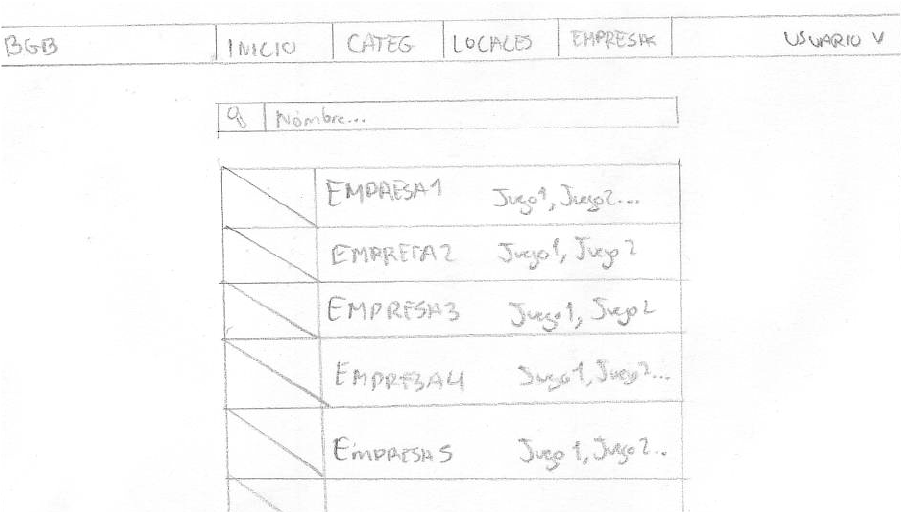 BGB INICIO CATEG LOCALES EMPRESAS USUARIO V
Nombre...
EMPRESA1 Juego1, Juego2...
EMPRESA2 Juego1, Juego2
EMPRESA3 Juego1, Juego2
EMPRESA4 Juego1, Juego2...
EMPRESA5 Juego1, Juego2..